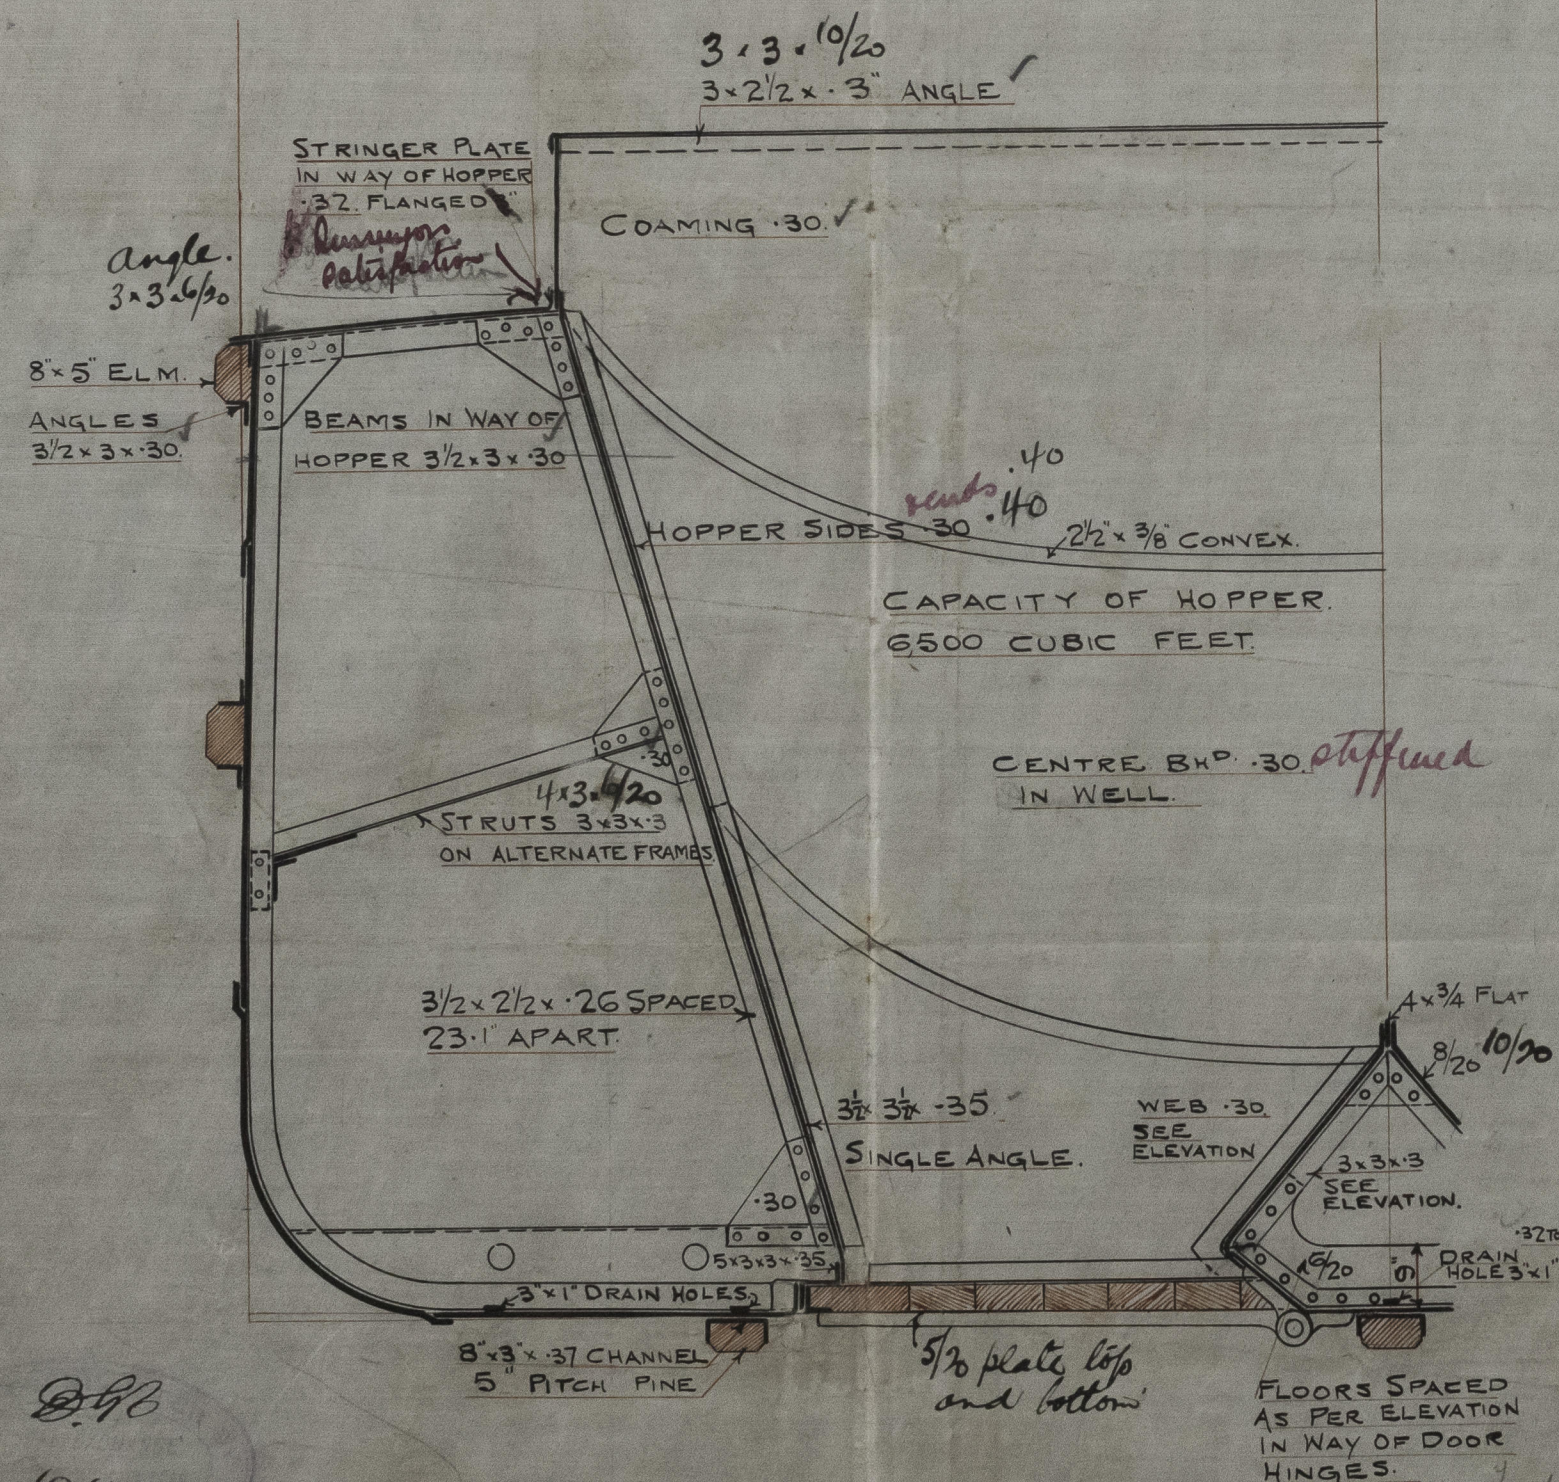 3 × 3 × 10/20
3 × 2 1/2 × ·3" ANGLE
STRINGER PLATE
IN WAY OF HOPPER
·32 FLANGED
Surveyors
satisfaction
COAMING ·30
angle.
3 × 3 × 6/20
8" × 5" ELM.
ANGLES
3 1/2 × 3 × ·30
BEAMS IN WAY OF
HOPPER 3 1/2 × 3 × ·30
.40
·40
HOPPER SIDES ·30
2 1/2" × 3/8" CONVEX.
CAPACITY OF HOPPER.
6,500 CUBIC FEET.
CENTRE BHD. ·30. stiffened
IN WELL.
·30
4 × 3 × 6/20
STRUTS 3 × 3 × ·3
ON ALTERNATE FRAMES
3 1/2 × 2 1/2 × ·26 SPACED
23·1" APART.
4 × 3/4 FLAT
8/20 10/20
3 1/2 × 3 1/2 × ·35
SINGLE ANGLE.
WEB ·30.
SEE
ELEVATION
3 × 3 × ·3
SEE
ELEVATION.
·30
5 × 3 × 3 × ·35
6/20
9"
·32 TO
DRAIN
HOLE 3" × 1"
3" × 1" DRAIN HOLES
8" × 3" × ·37 CHANNEL
5" PITCH PINE
5/20 plate top
and bottom
FLOORS SPACED
AS PER ELEVATION
IN WAY OF DOOR
HINGES.